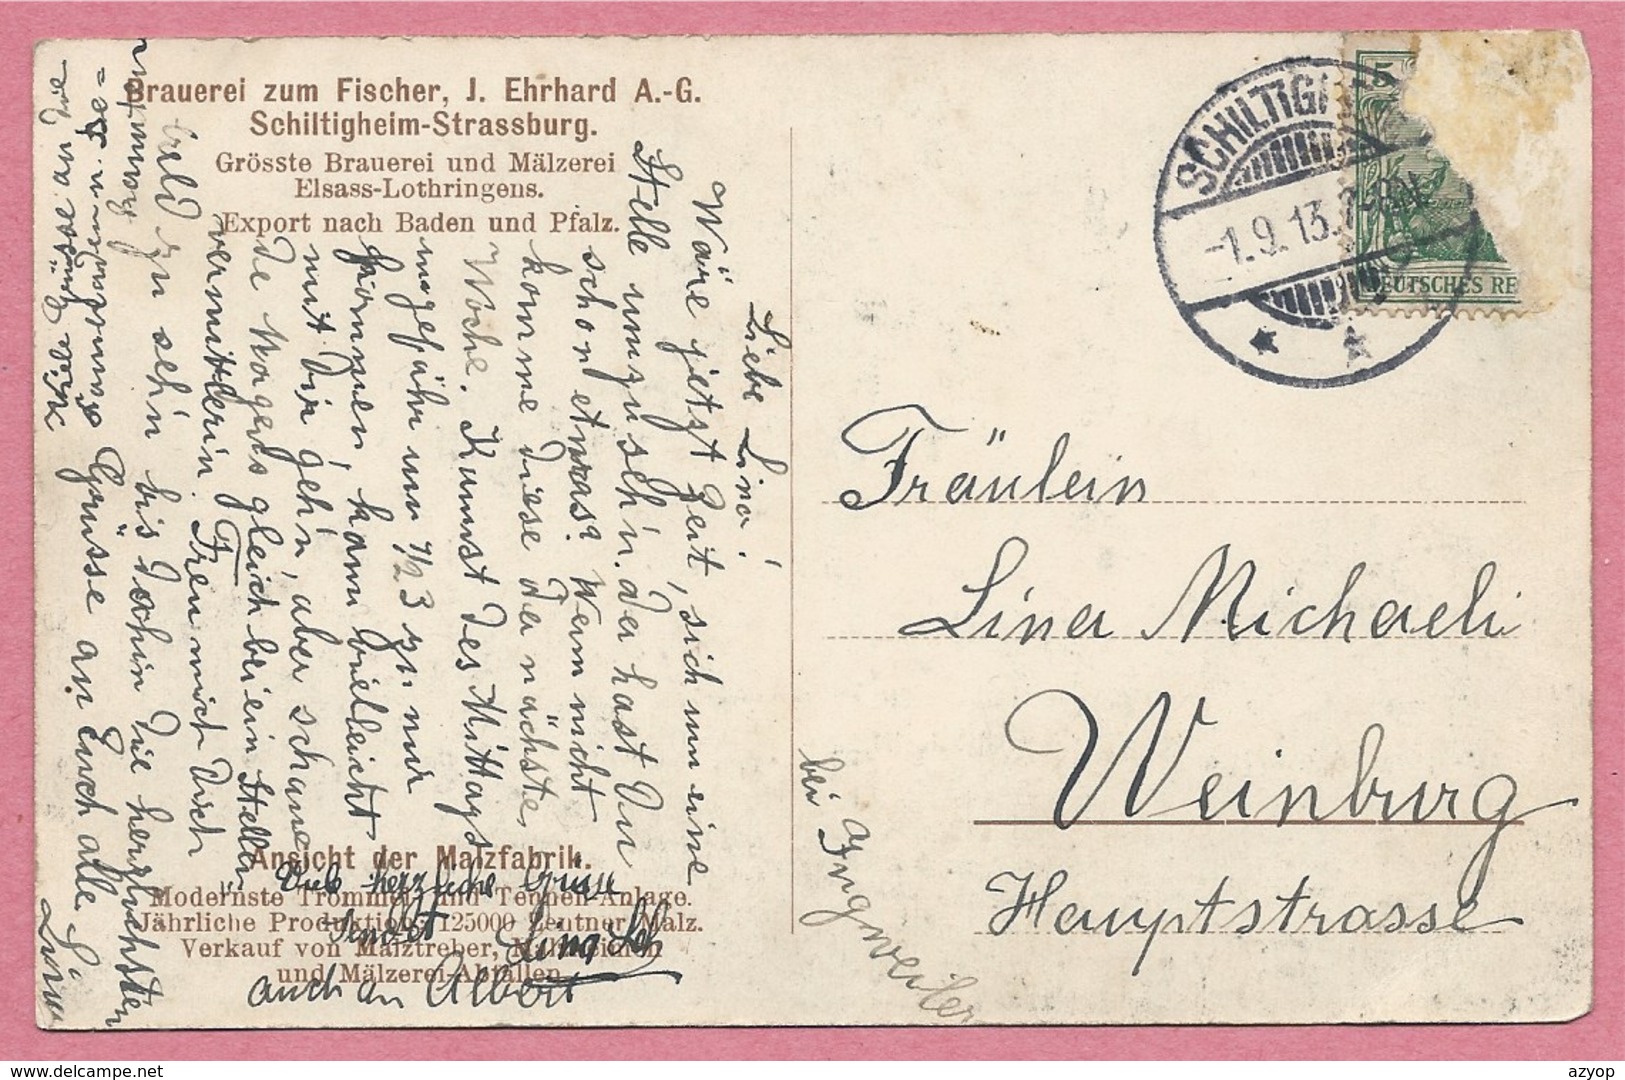 Brauerei zum Fischer, J. Ehrhard A.-G.
Schiltigheim-Strassburg.
Grösste Brauerei und Mälzerei
Elsass-Lothringens.
Export nach Baden und Pfalz.
Liebe Lina!
Wäre jetzt Zeit, sich um eine
Stelle umzuseh'n. da hast Du
schon etwas? Wenn nicht
komme diese oder nächste
Woche. Kannst des Mittags
ungefähr um 1/2 3 zu mir
kommen, kann vielleicht
mit Dir geh'n, aber schaue
De Wagers gleich bei ein Stellen
vermittlerin. Freu mich Dich
bald zu seh'n bis dahin die herzlichsten
Grüsse an Euch alle Lina
Viele Grüsse an die
Ansicht der Malzfabrik.
Modernste Trommel- und Tennen-Anlage.
Jährliche Produktion 125000 Zentner Malz.
Verkauf von Malztreber, Malzkeimen
und Mälzerei-Abfällen.
Viele herzliche Grüsse
sendet Lina
auch an Albert
SCHILTIGH
-1.9.13.
5
DEUTSCHES RE
Fräulein
Lina Michaeli
Weinburg
bei Ingweiler
Hauptstrasse
delcampe.net
azyop